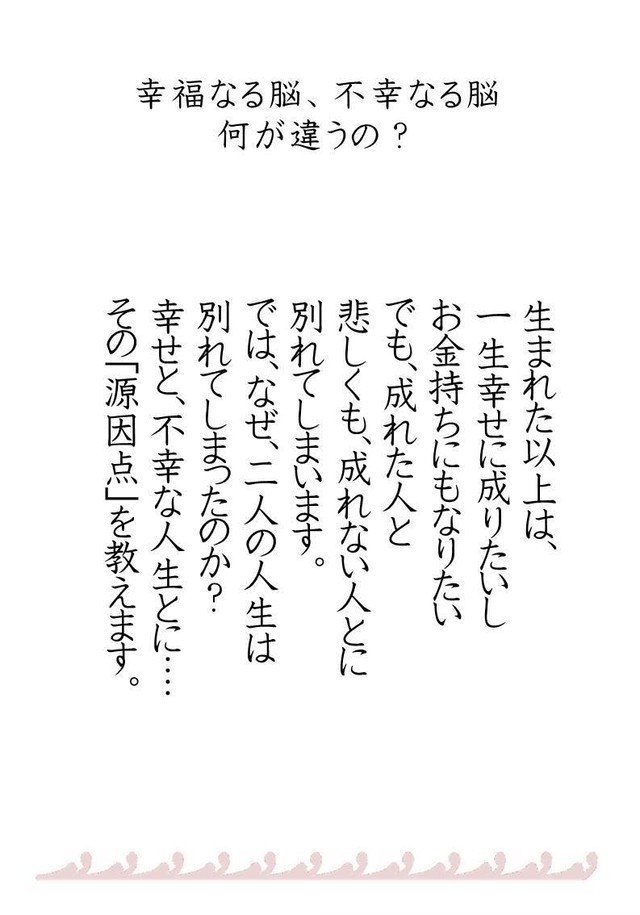 幸福なる脳、不幸なる脳
何が違うの？
生まれた以上は、
一生幸せに成りたいし
お金持ちにもなりたい
でも、成れた人と
悲しくも、成れない人とに
別れてしまいます。
では、なぜ、二人の人生は
別れてしまったのか？
幸せと、不幸な人生とに……
その「源因点」を教えます。